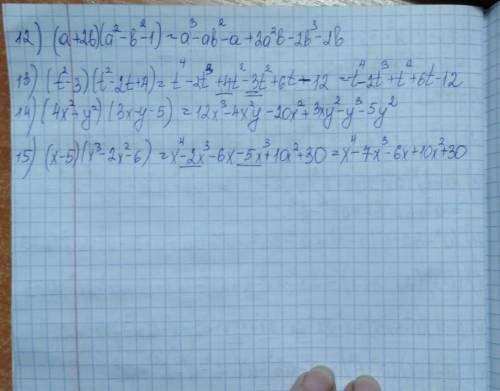 12) (a+2b)(a²-b²-1)=a³-ab²-a+2a²b-2b³-2b
13) (t²-3)(t²-2t+4)=t⁴-2t³+4t²-3t²+6t-12=t⁴-2t³+t²+6t-12
14) (4x²-y²)(3x-y-5)=12x³-4x²y-20x²+3xy²-y³-5y²
15) (x-5)(x³-2x²-6)=x⁴-2x³-6x-5x³+10x²+30=x⁴-7x³-6x+10x²+30